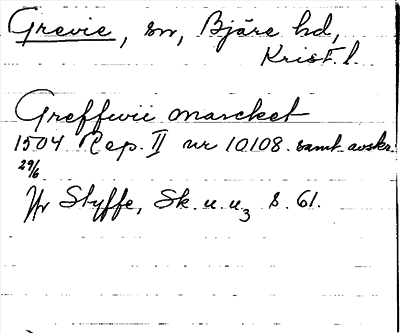 Grevie, sn, Bjäre hd,
Krist. l.
Greffwii marcket
1504 Rep. II nr 10108. samt. avskr.
29/6
Jfr Styffe, Sk. u. u3 s. 61.